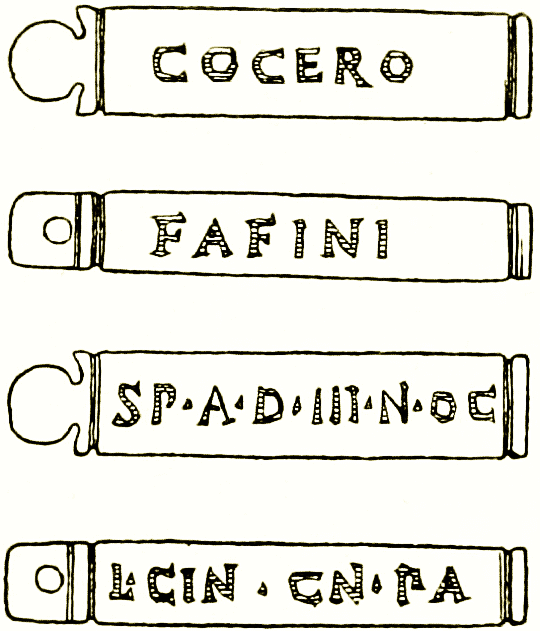 COCERO
FAFINI
SP·A·D·III·N·OC
L·CIN · CN·PA